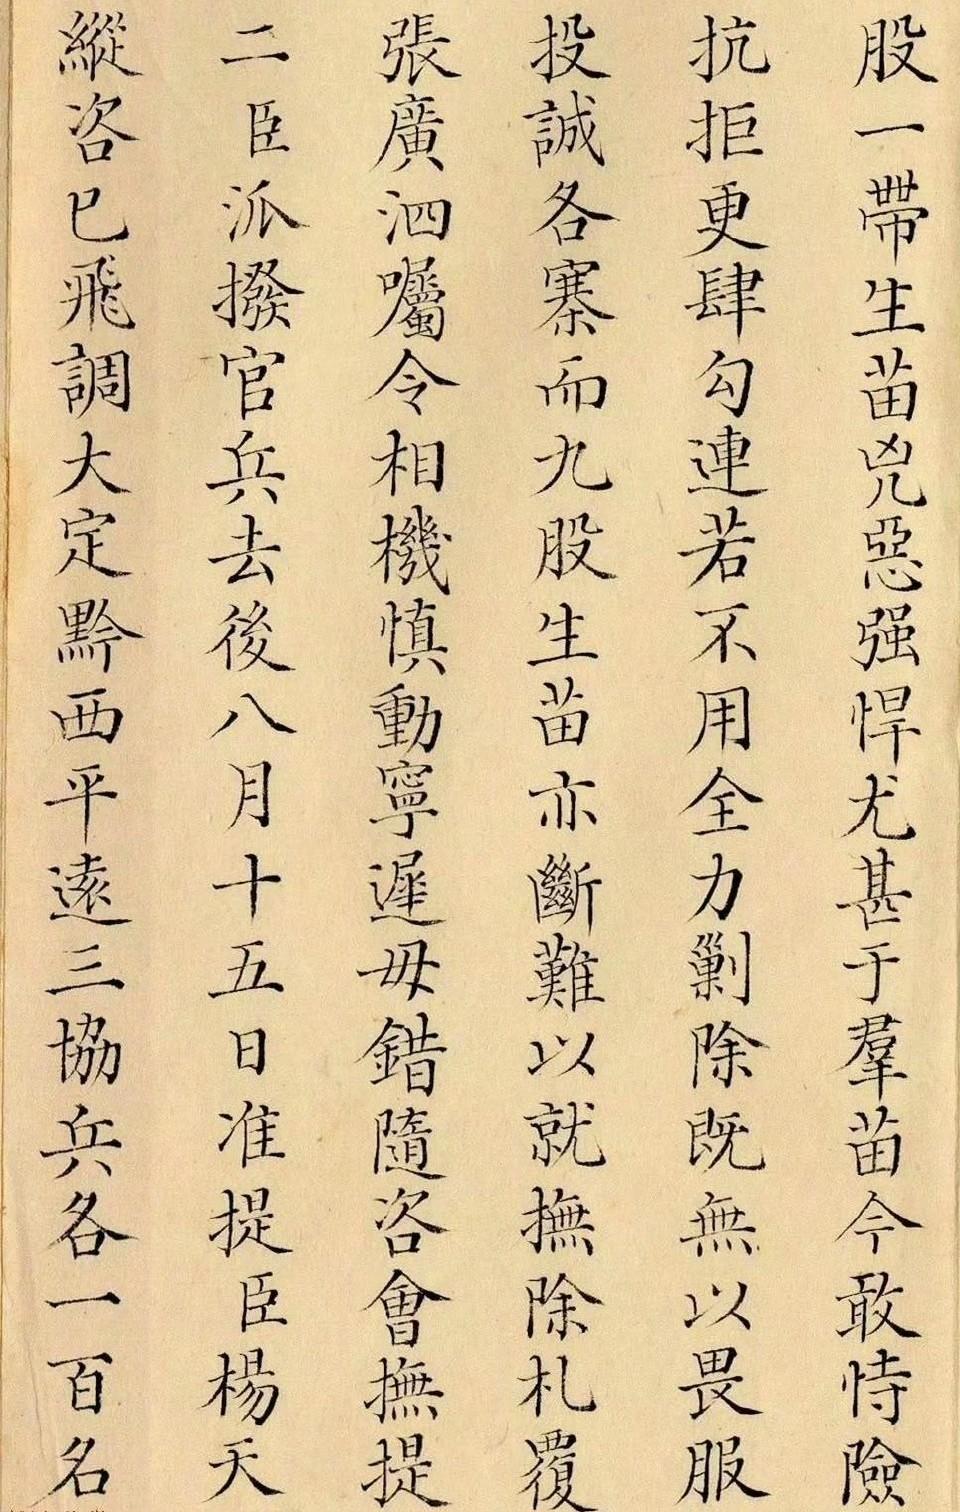 股一帶生苗兇惡强悍尤甚于羣苗今敢恃險
抗拒更肆勾連若不用全力剿除既無以畏服
投誠各寨而九股生苗亦斷難以就撫除札覆
張廣泗囑令相機慎動寧遲毋錯隨咨會撫提
二臣派撥官兵去後八月十五日准提臣楊天
縱咨已飛調大定黔西平遠三協兵各一百名